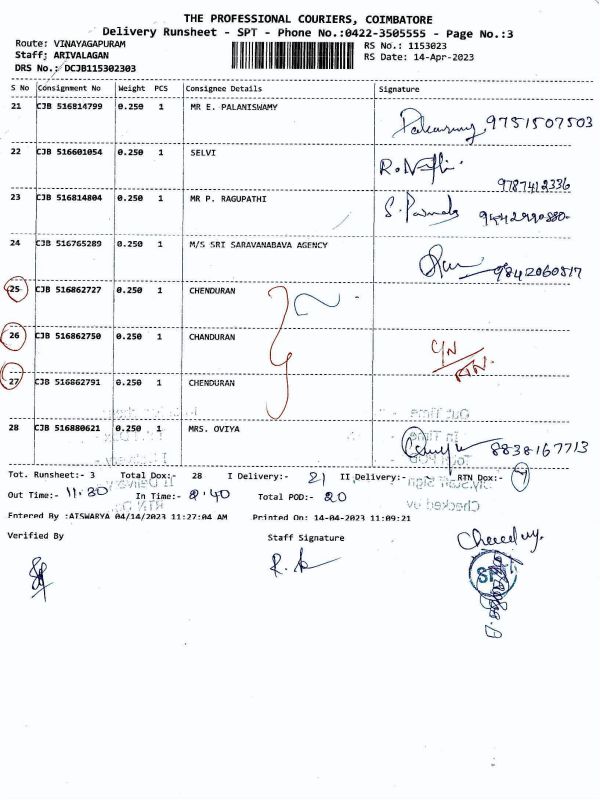 THE PROFESSIONAL COURIERS, COIMBATORE
Delivery Runsheet - SPT - Phone No.:0422-3505555 - Page No.:3
Route: VINAYAGAPURAM RS No.: 1153023
Staff; ARIVALAGAN RS Date: 14-Apr-2023
DRS No.: DCJB115302303
S No Consignment No Weight PCS Consignee Details Signature
21 CJB 516814799 0.250 1 MR E. PALANISWAMY 9751507503
22 CJB 516601054 0.250 1 SELVI 9787412336
23 CJB 516814804 0.250 1 MR P. RAGUPATHI 9442990880
24 CJB 516765289 0.250 1 M/S SRI SARAVANABAVA AGENCY 9842060517
25 CJB 516862727 0.250 1 CHENDURAN
26 CJB 516862750 0.250 1 CHANDURAN C/N RTN.
27 CJB 516862791 0.250 1 CHENDURAN
28 CJB 516880621 0.250 1 MRS. OVIYA 8838167713
Tot. Runsheet:- 3 Total Dox:- 28 I Delivery:- 21 II Delivery:- RTN Dox:- 7
Out Time:- 11.30 In Time:- 2.40 Total POD:- 20
Entered By :AISWARYA 04/14/2023 11:27:04 AM Printed On: 14-04-2023 11:09:21
Verified By Staff Signature